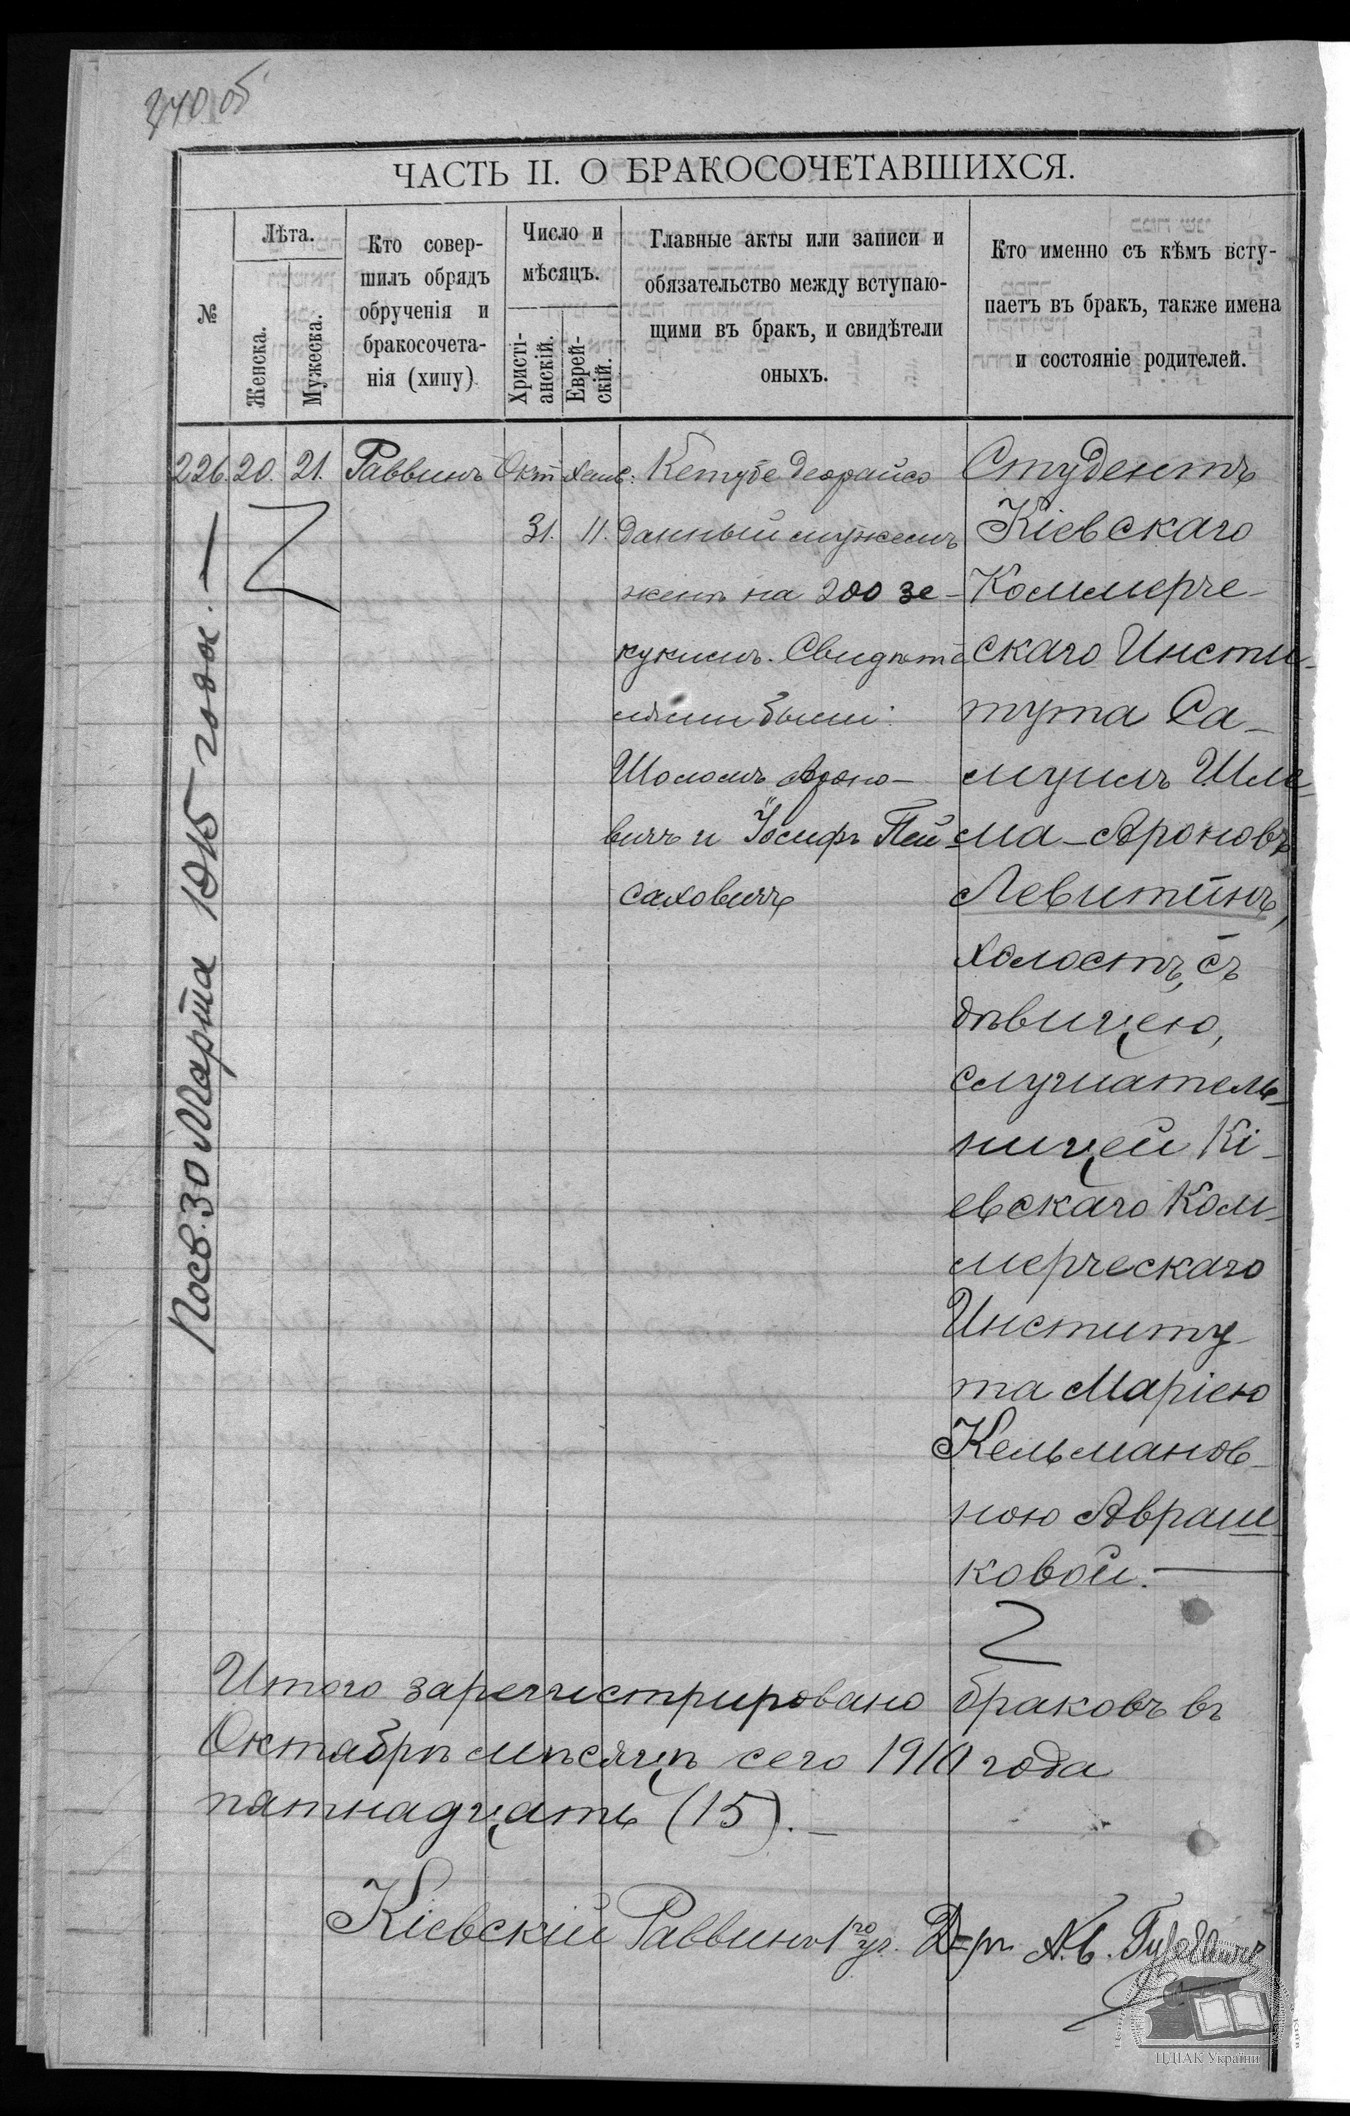 340 об
ЧАСТЬ II. О БРАКОСОЧЕТАВШИХСЯ.
№
Лѣта.
Женска.
Мужеска.
Кто совер-
шилъ обрядъ
обрученія и
бракосочета-
нія (хипу)
Число и
мѣсяцъ.
Христі-
анскій.
Еврей-
скій.
Главные акты или записи и
обязательство между вступаю-
щими въ бракъ, и свидѣтели
оныхъ.
Кто именно съ кѣмъ всту-
паетъ въ бракъ, также имена
и состояніе родителей.
226. 20. 21. Раввинъ Окт 31. Хешв: 11.
Кетубе деорайсо
данный мужемъ
женѣ на 200 зе-
кукимъ. Свидѣте
лями были:
Шоломъ Ароно-
вичъ и Іосифъ Пей
саховичъ
Студентъ
Кіевскаго
Коммерче-
скаго Инсти-
тута Са-
муилъ Шле-
ма-Ароновъ
Левитинъ,
холостъ, съ
дѣвицею,
слушатель-
ницей Кі-
евскаго Ком-
мерческаго
Институ-
та Маріею
Кельманов-
ною Авраш-
ковой.
Посв. 30 Марта 1915 года.
Итого зарегистрировано браковъ въ
Октябрѣ мѣсяцѣ сего 1910 года
пятнадцать (15).
Кіевскій Раввинъ 1го уч. Д-ръ А.Б. Гуревичъ
ЦДІАК України